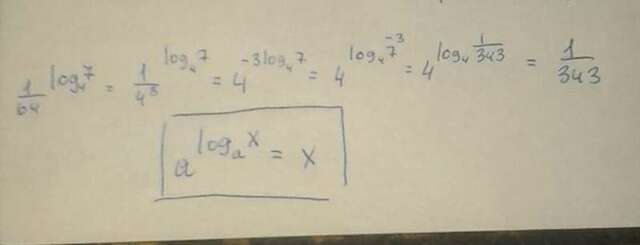 1/64^log₄7 = 1/4³^log₄7 = 4^-3log₄7 = 4^log₄7^-3 = 4^log₄1/343 = 1/343
a^logₐx = x